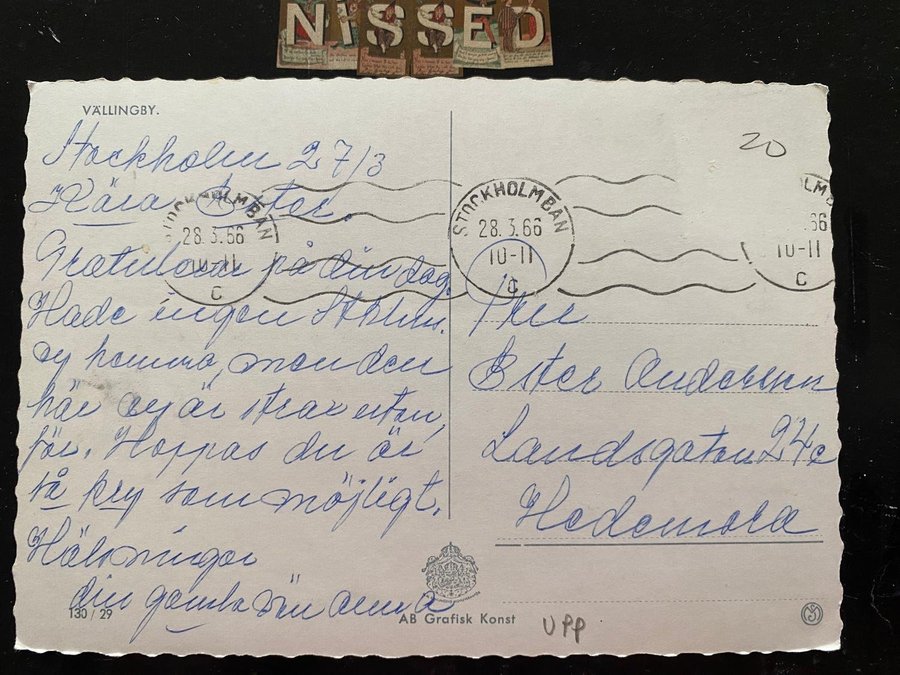 NISSED
VÄLLINGBY.
Stockholm 27/3
Kära Ester.
Gratulerar på din dag.
Hade ingen Sthlms.
vy hemma, men den
här vy är strax utan,
för. Hoppas du är
så pry som möjligt.
Hälsningar
din gamla vän Anna
130/29
20
STOCKHOLM BAN
28.3.66
10-11
C
STOCKHOLM BAN
28.3.66
10-11
C
OLM
66
10-11
C
Fru
Ester Andersson
Landsgatan 24c
Hedemora
AB Grafisk Konst
UPP